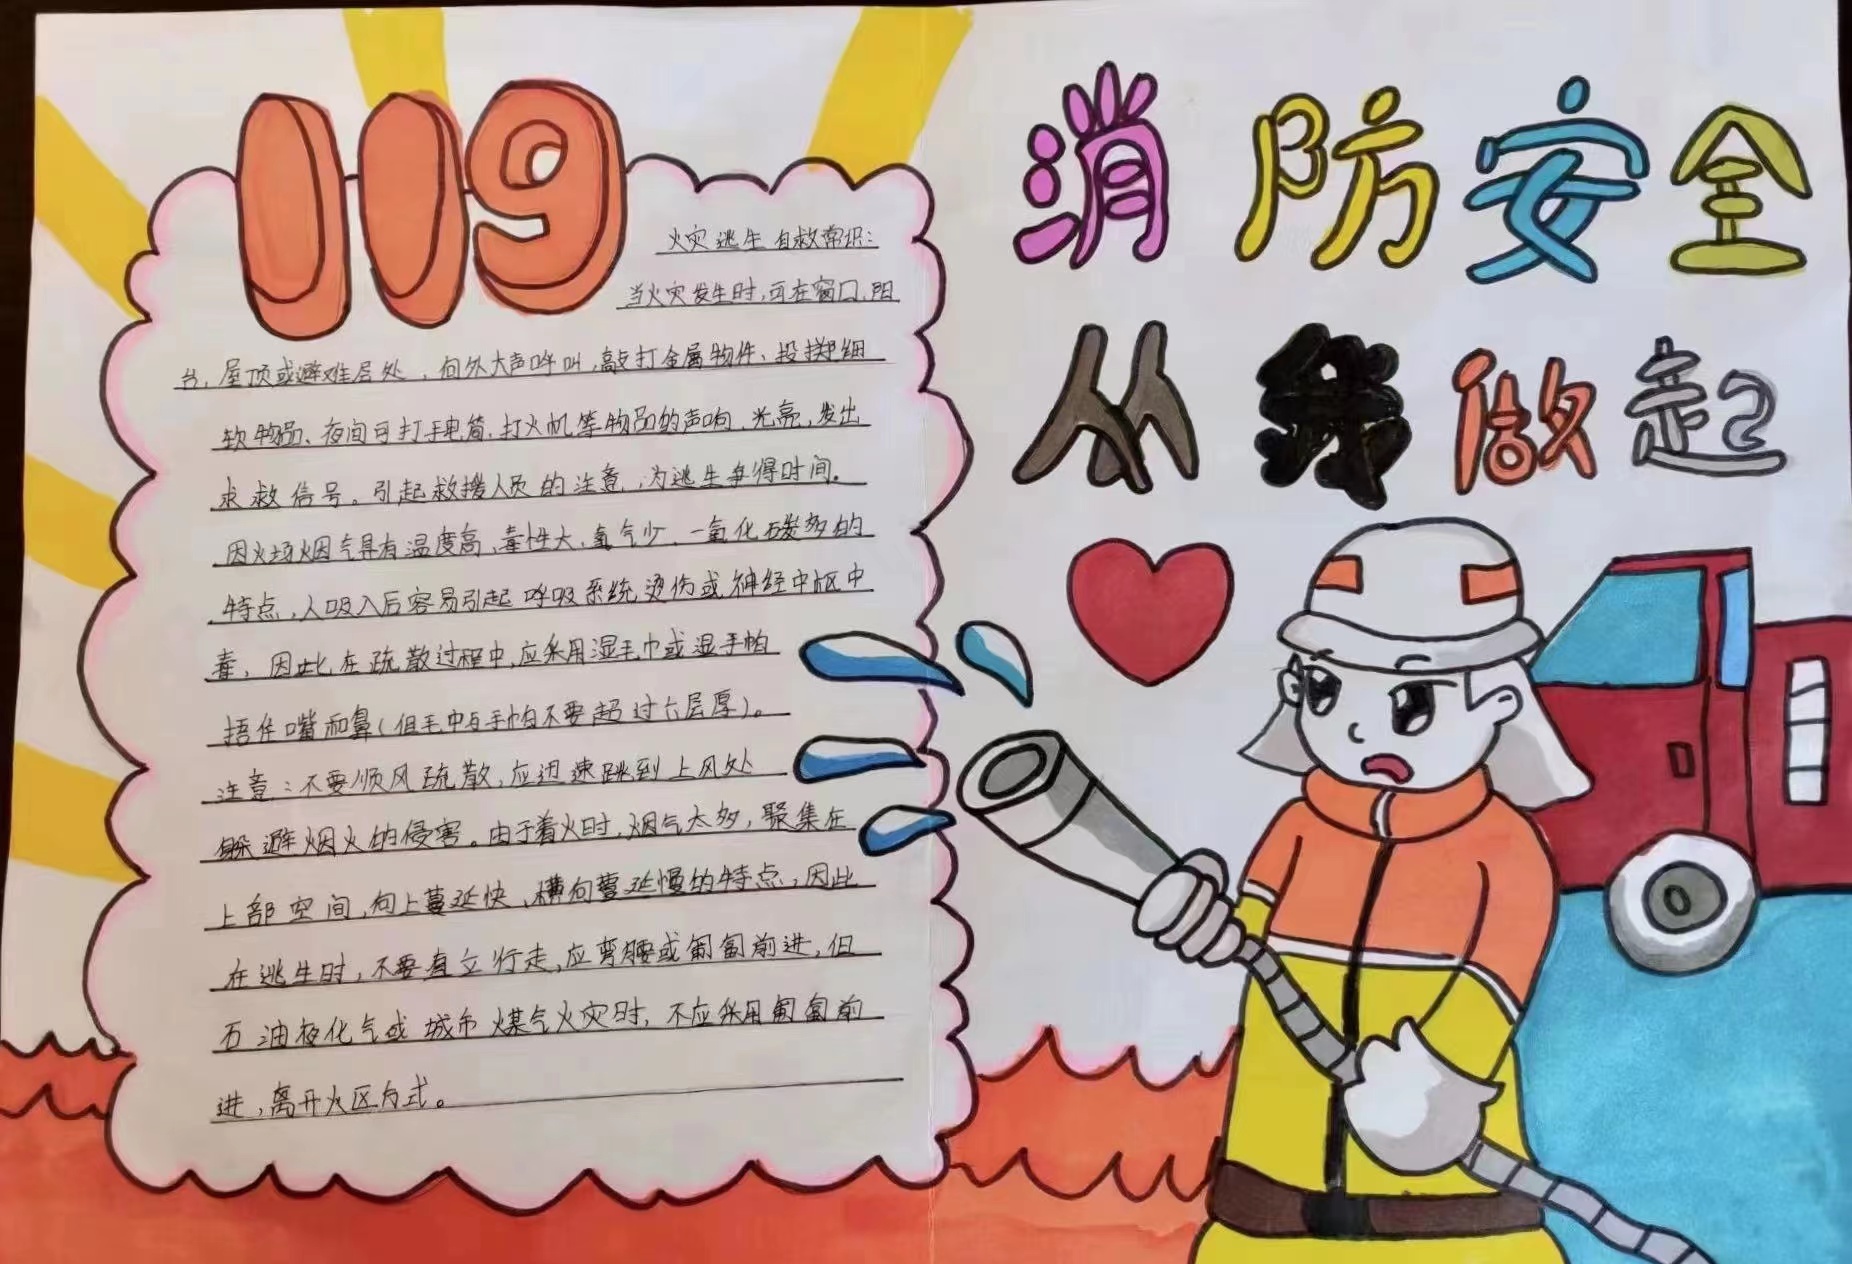 119
消防安全
从我做起
火灾逃生自救常识:
当火灾发生时,可在窗口、阳
台、屋顶或避难层处,向外大声呼叫,敲打金属物件、投掷细
软物品、夜间可打手电筒、打火机等物品的声响、光亮,发出
求救信号。引起救援人员的注意,为逃生争得时间。
因火场烟气具有温度高、毒性大、氧气少、一氧化碳多的
特点,人吸入后容易引起呼吸系统烫伤或神经中枢中
毒,因此在疏散过程中,应采用湿毛巾或湿手帕
捂住嘴和鼻(但毛巾与手帕不要超过六层厚)。
注意:不要顺风疏散,应迅速跳到上风处
躲避烟火的侵害。由于着火时,烟气太多,聚集在
上部空间,向上蔓延快、横向蔓延慢的特点,因此
在逃生时,不要直立行走,应弯腰或匍匐前进,但
石油液化气或城市煤气火灾时,不应采用匍匐前
进,离开火区方式。